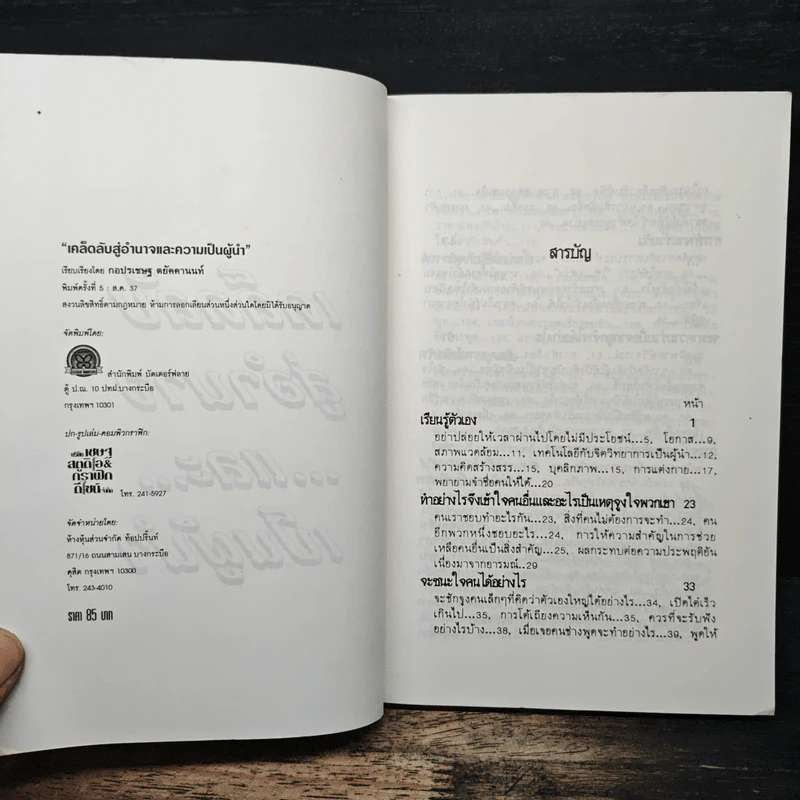 "เคล็ดลับสู่อำนาจและความเป็นผู้นำ"
เรียบเรียงโดย กอปรเชษฐ ตยัคคานนท์
พิมพ์ครั้งที่ 5 : ส.ค. 37
สงวนลิขสิทธิ์ตามกฎหมาย ห้ามการลอกเลียนส่วนหนึ่งส่วนใดโดยมิได้รับอนุญาต
จัดพิมพ์โดย:
สำนักพิมพ์ บัตเตอร์ฟลาย
ตู้ ป.ณ. 10 ปทฝ.บางกระบือ
กรุงเทพฯ 10301
ปก-รูปเล่ม-คอมพิวกราฟิก:
บริษัท เชษฐ
สตูดิโอ&
กราฟิค
ดีไซน์ จำกัด
โทร. 241-5927
จัดจำหน่ายโดย:
ห้างหุ้นส่วนจำกัด ท้อปปริ๊นท์
871/16 ถนนสามเสน บางกระบือ
ดุสิต กรุงเทพฯ 10300
โทร. 243-4010
ราคา 85 บาท
สารบัญ
หน้า
เรียนรู้ตัวเอง 1
อย่าปล่อยให้เวลาผ่านไปโดยไม่มีประโยชน์...5, โอกาส...9,
สภาพแวดล้อม...11, เทคโนโลยีกับจิตวิทยาการเป็นผู้นำ...12,
ความคิดสร้างสรร...15, บุคลิกภาพ...15, การแต่งกาย...17,
พยายามจำชื่อคนให้ได้...20
ทำอย่างไรจึงเข้าใจคนอื่นและอะไรเป็นเหตุจูงใจพวกเขา 23
คนเราชอบทำอะไรกัน...23, สิ่งที่คนไม่ต้องการจะทำ...24, คน
อีกพวกหนึ่งชอบอะไร...24, การให้ความสำคัญในการช่วย
เหลือคนอื่นเป็นสิ่งสำคัญ...25, ผลกระทบต่อความประพฤติอัน
เนื่องมาจากอารมณ์..29
จะชนะใจคนได้อย่างไร 33
จะชักจูงคนเล็กๆที่คิดว่าตัวเองใหญ่ได้อย่างไร...34, เปิดไต๋เร็ว
เกินไป...35, การโต้เถียงความเห็นกัน...35, ควรที่จะรับฟัง
อย่างไรบ้าง...38, เมื่อเจอคนช่างพูดจะทำอย่างไร...39, พูดให้